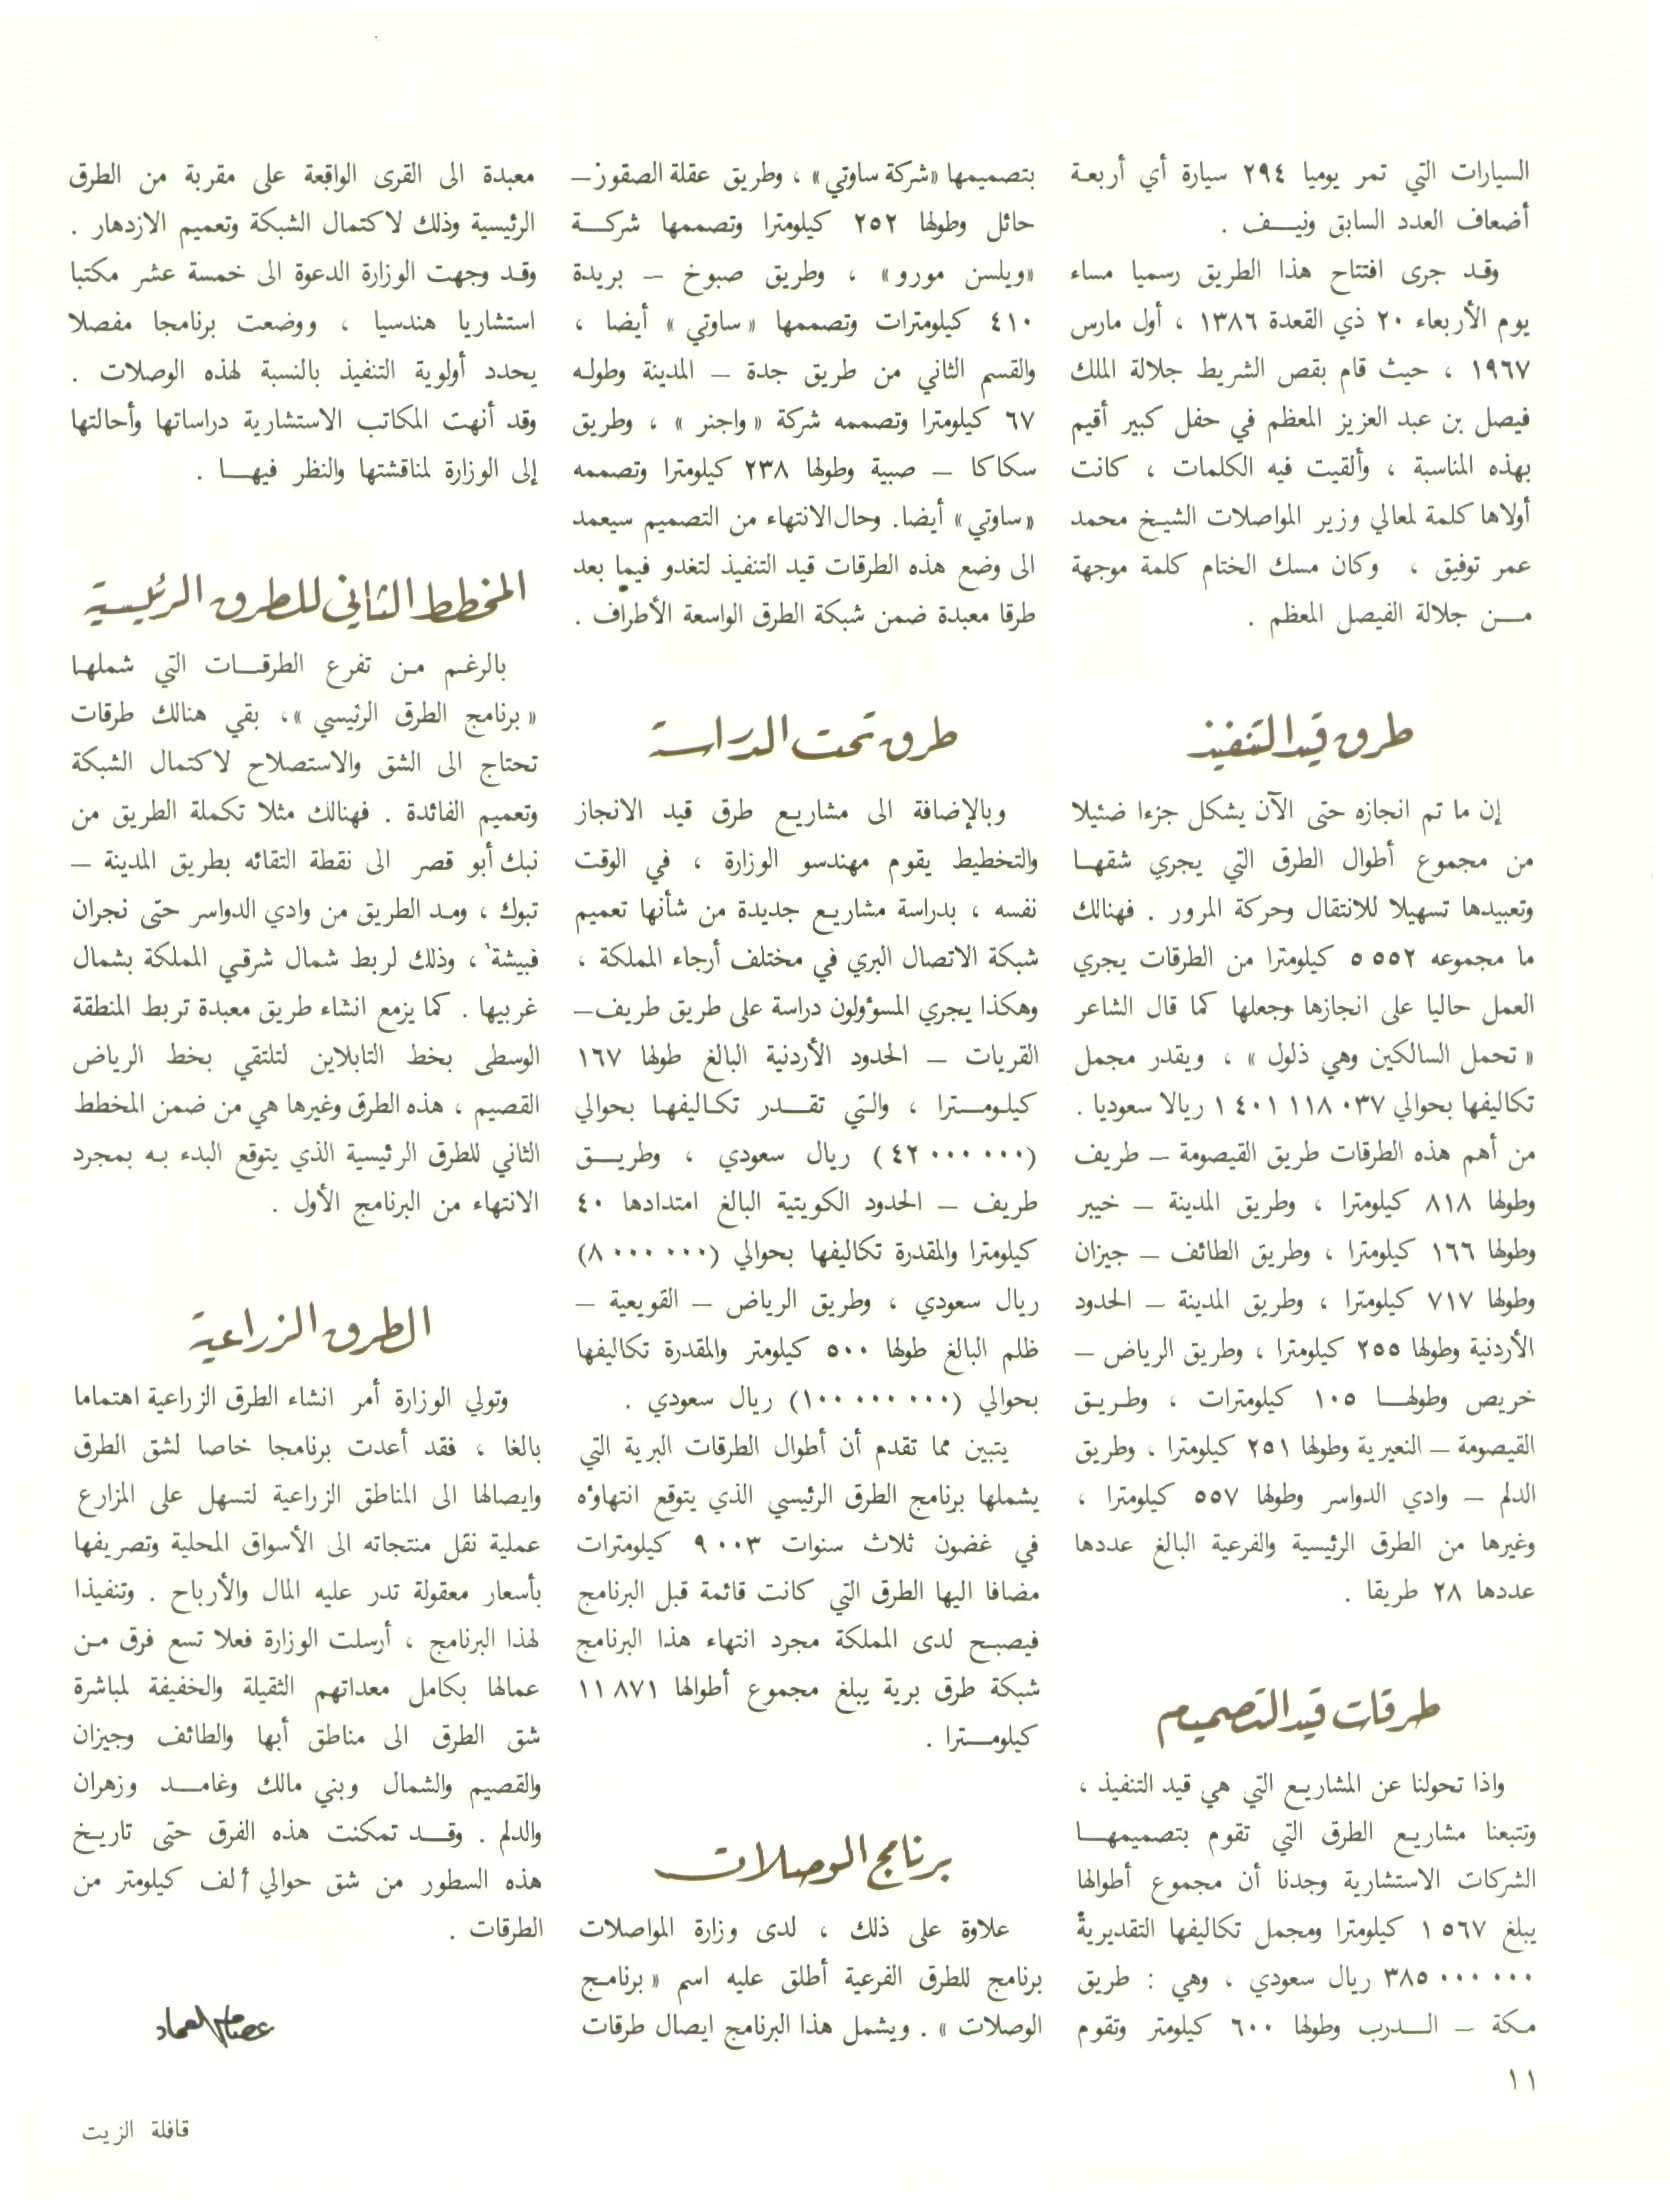 السيارات التي تمر يوميا ٢٩٤ سيارة أي أربعة
أضعاف العدد السابق ونيــف .
وقد جرى افتتاح هذا الطريق رسميا مساء
يوم الأربعاء ٢٠ ذي القعدة ١٣٨٦ ، أول مارس
١٩٦٧ ، حيث قام بقص الشريط جلالة الملك
فيصل بن عبد العزيز المعظم في حفل كبير أقيم
بهذه المناسبة ، وألقيت فيه الكلمات ، كانت
أولاها كلمة لمعالي وزير المواصلات الشيخ محمد
عمر توفيق ، وكان مسك الختام كلمة موجهة
مــن جلالة الفيصل المعظم .
طرق قيد التنفيذ
إن ما تم انجازه حتى الآن يشكل جزءا ضئيلا
من مجموع أطوال الطرق التي يجري شقهـا
وتعبيدها تسهيلا للانتقال وحركة المرور . فهنالك
ما مجموعه ٥٥٥٢ كيلومترا من الطرقات يجري
العمل حاليا على انجازها وجعلها كما قال الشاعر
« تحمل السالكين وهي ذلول » ، ويقدر مجمل
تكاليفها بحوالي ١٤٠١١١٨٠٣٧ ريالا سعوديا .
من أهم هذه الطرقات طريق القيصومة – طريف
وطولها ٨١٨ كيلومترا ، وطريق المدينة – خيبر
وطولها ١٦٦ كيلومترا ، وطريق الطائف – جيزان
وطولها ٧١٧ كيلومترا ، وطريق المدينة – الحدود
الأردنية وطولها ٢٥٥ كيلومترا ، وطريق الرياض –
خريص وطولهــا ١٠٥ كيلومترات ، وطريـق
القيصومة – النعيرية وطولها ٢٥١ كيلومترا ، وطريق
الدلم – وادي الدواسر وطولها ٥٥٧ كيلومترا ،
وغيرها من الطرق الرئيسية والفرعية البالغ عددها
عددها ٢٨ طريقا .
طرقات قيد التصميم
واذا تحولنا عن المشاريع التي هي قيد التنفيذ ،
وتتبعنا مشاريع الطرق التي تقوم بتصميمهــا
الشركات الاستشارية وجدنا أن مجموع أطوالها
يبلغ ١٥٦٧ كيلومترا ومجمل تكاليفها التقديرية
٣٨٥٠٠٠٠٠٠ ريال سعودي ، وهي : طريق
مكة – الــدرب وطولها ٦٠٠ كيلومتر وتقوم
بتصميمها «شركة ساوتي» ، وطريق عقلة الصقور–
حائل وطولها ٢٥٢ كيلومترا وتصممها شركــة
«ويلسن مورو» ، وطريق صبوخ – بريدة
٤١٠ كيلومترات وتصممها «ساوتي» أيضا ،
والقسم الثاني من طريق جدة – المدينة وطوله
٦٧ كيلومترا وتصممه شركة «واجنر» ، وطريق
سكاكا – صبية وطولها ٢٣٨ كيلومترا وتصممه
«ساوتي» أيضا. وحال الانتهاء من التصميم سيعمد
الى وضع هذه الطرقات قيد التنفيذ لتغدو فيما بعد
طرقا معبدة ضمن شبكة الطرق الواسعة الأطراف .
طرق تحت الدراسة
وبالإضافة الى مشاريع طرق قيد الانجاز
والتخطيط يقوم مهندسو الوزارة ، في الوقت
نفسه ، بدراسة مشاريع جديدة من شأنها تعميم
شبكة الاتصال البري في مختلف أرجاء المملكة ،
وهكذا يجري المسؤولون دراسة على طريق طريف–
القريات – الحدود الأردنية البالغ طولها ١٦٧
كيلومــترا ، والتي تقــدر تكاليفها بحوالي
(٤٢٠٠٠٠٠٠) ريال سعودي ، وطريــق
طريف – الحدود الكويتية البالغ امتدادها ٤٠
كيلومترا والمقدرة تكاليفها بحوالي (٨٠٠٠٠٠٠)
ريال سعودي ، وطريق الرياض – القويعية –
ظلم البالغ طولها ٥٠٠ كيلومتر والمقدرة تكاليفها
بحوالي (١٠٠٠٠٠٠٠٠) ريال سعودي .
يتبين مما تقدم أن أطوال الطرقات البرية التي
يشملها برنامج الطرق الرئيسي الذي يتوقع انتهاؤه
في غضون ثلاث سنوات ٩٠٠٣ كيلومترات
مضافا اليها الطرق التي كانت قائمة قبل البرنامج
فيصبح لدى المملكة مجرد انتهاء هذا البرنامج
شبكة طرق برية يبلغ مجموع أطوالها ١١٨٧١
كيلومــترا .
برنامج الوصلات
علاوة على ذلك ، لدى وزارة المواصلات
برنامج للطرق الفرعية أطلق عليه اسم «برنامج
الوصلات» . ويشمل هذا البرنامج ايصال طرقات
معبدة الى القرى الواقعة على مقربة من الطرق
الرئيسية وذلك لاكتمال الشبكة وتعميم الازدهار .
وقد وجهت الوزارة الدعوة الى خمسة عشر مكتبا
استشاريا هندسيا ، ووضعت برنامجا مفصلا
يحدد أولوية التنفيذ بالنسبة لهذه الوصلات .
وقد أنهت المكاتب الاستشارية دراساتها وأحالتها
إلى الوزارة لمناقشتها والنظر فيهــا .
المخطط الثاني للطرق الرئيسية
بالرغم من تفرع الطرقــات التي شملها
«برنامج الطرق الرئيسي»، بقي هنالك طرقات
تحتاج الى الشق والاستصلاح لاكتمال الشبكة
وتعميم الفائدة . فهنالك مثلا تكملة الطريق من
نبك أبو قصر الى نقطة التقائه بطريق المدينة –
تبوك ، ومد الطريق من وادي الدواسر حتى نجران
فبيشة ، وذلك لربط شمال شرقي المملكة بشمال
غربيها . كما يزمع انشاء طريق معبدة تربط المنطقة
الوسطى بخط التابلاين لتلتقي بخط الرياض
القصيم ، هذه الطرق وغيرها هي من ضمن المخطط
الثاني للطرق الرئيسية الذي يتوقع البدء به بمجرد
الانتهاء من البرنامج الأول .
الطرق الزراعية
وتولي الوزارة أمر انشاء الطرق الزراعية اهتماما
بالغا ، فقد أعدت برنامجا خاصا لشق الطرق
وايصالها الى المناطق الزراعية لتسهل على المزارع
عملية نقل منتجاته الى الأسواق المحلية وتصريفها
بأسعار معقولة تدر عليه المال والأرباح . وتنفيذا
لهذا البرنامج ، أرسلت الوزارة فعلا تسع فرق من
عمالها بكامل معداتهم الثقيلة والخفيفة لمباشرة
شق الطرق الى مناطق أبها والطائف وجيزان
والقصيم والشمال وبني مالك وغامــد وزهران
والدلم . وقــد تمكنت هذه الفرق حتى تاريخ
هذه السطور من شق حوالي ألف كيلومتر من
الطرقات .
عصام العماد
١١
قافلة الزيت